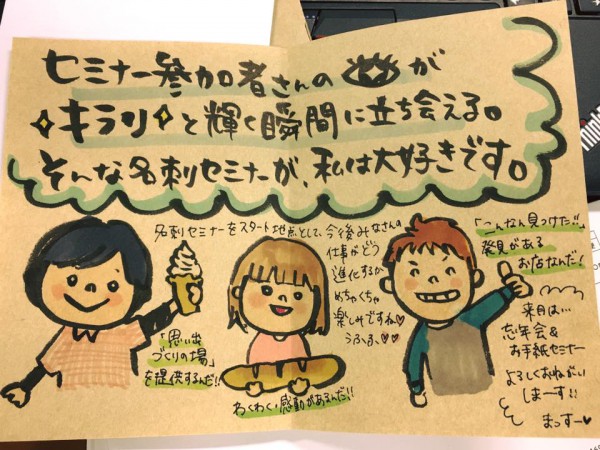 セミナー参加者さんの が
キラリ と輝く瞬間に立ち会える。
そんな名刺セミナーが、私は大好きです。
名刺セミナーをスタート地点として、今後みなさんの
仕事がどう
進化するか
めちゃくちゃ
楽しみですね♡
うふふ ♡♡
「思い出
づくりの場」
を提供するんだ!!
わくわく感動があるんだ!!
「こんなん見つけた!!」
発見がある
お店なんだ!
来月は…
忘年会&
お手紙セミナー
よろしくおねがい
しまーす!!
まっすー♡